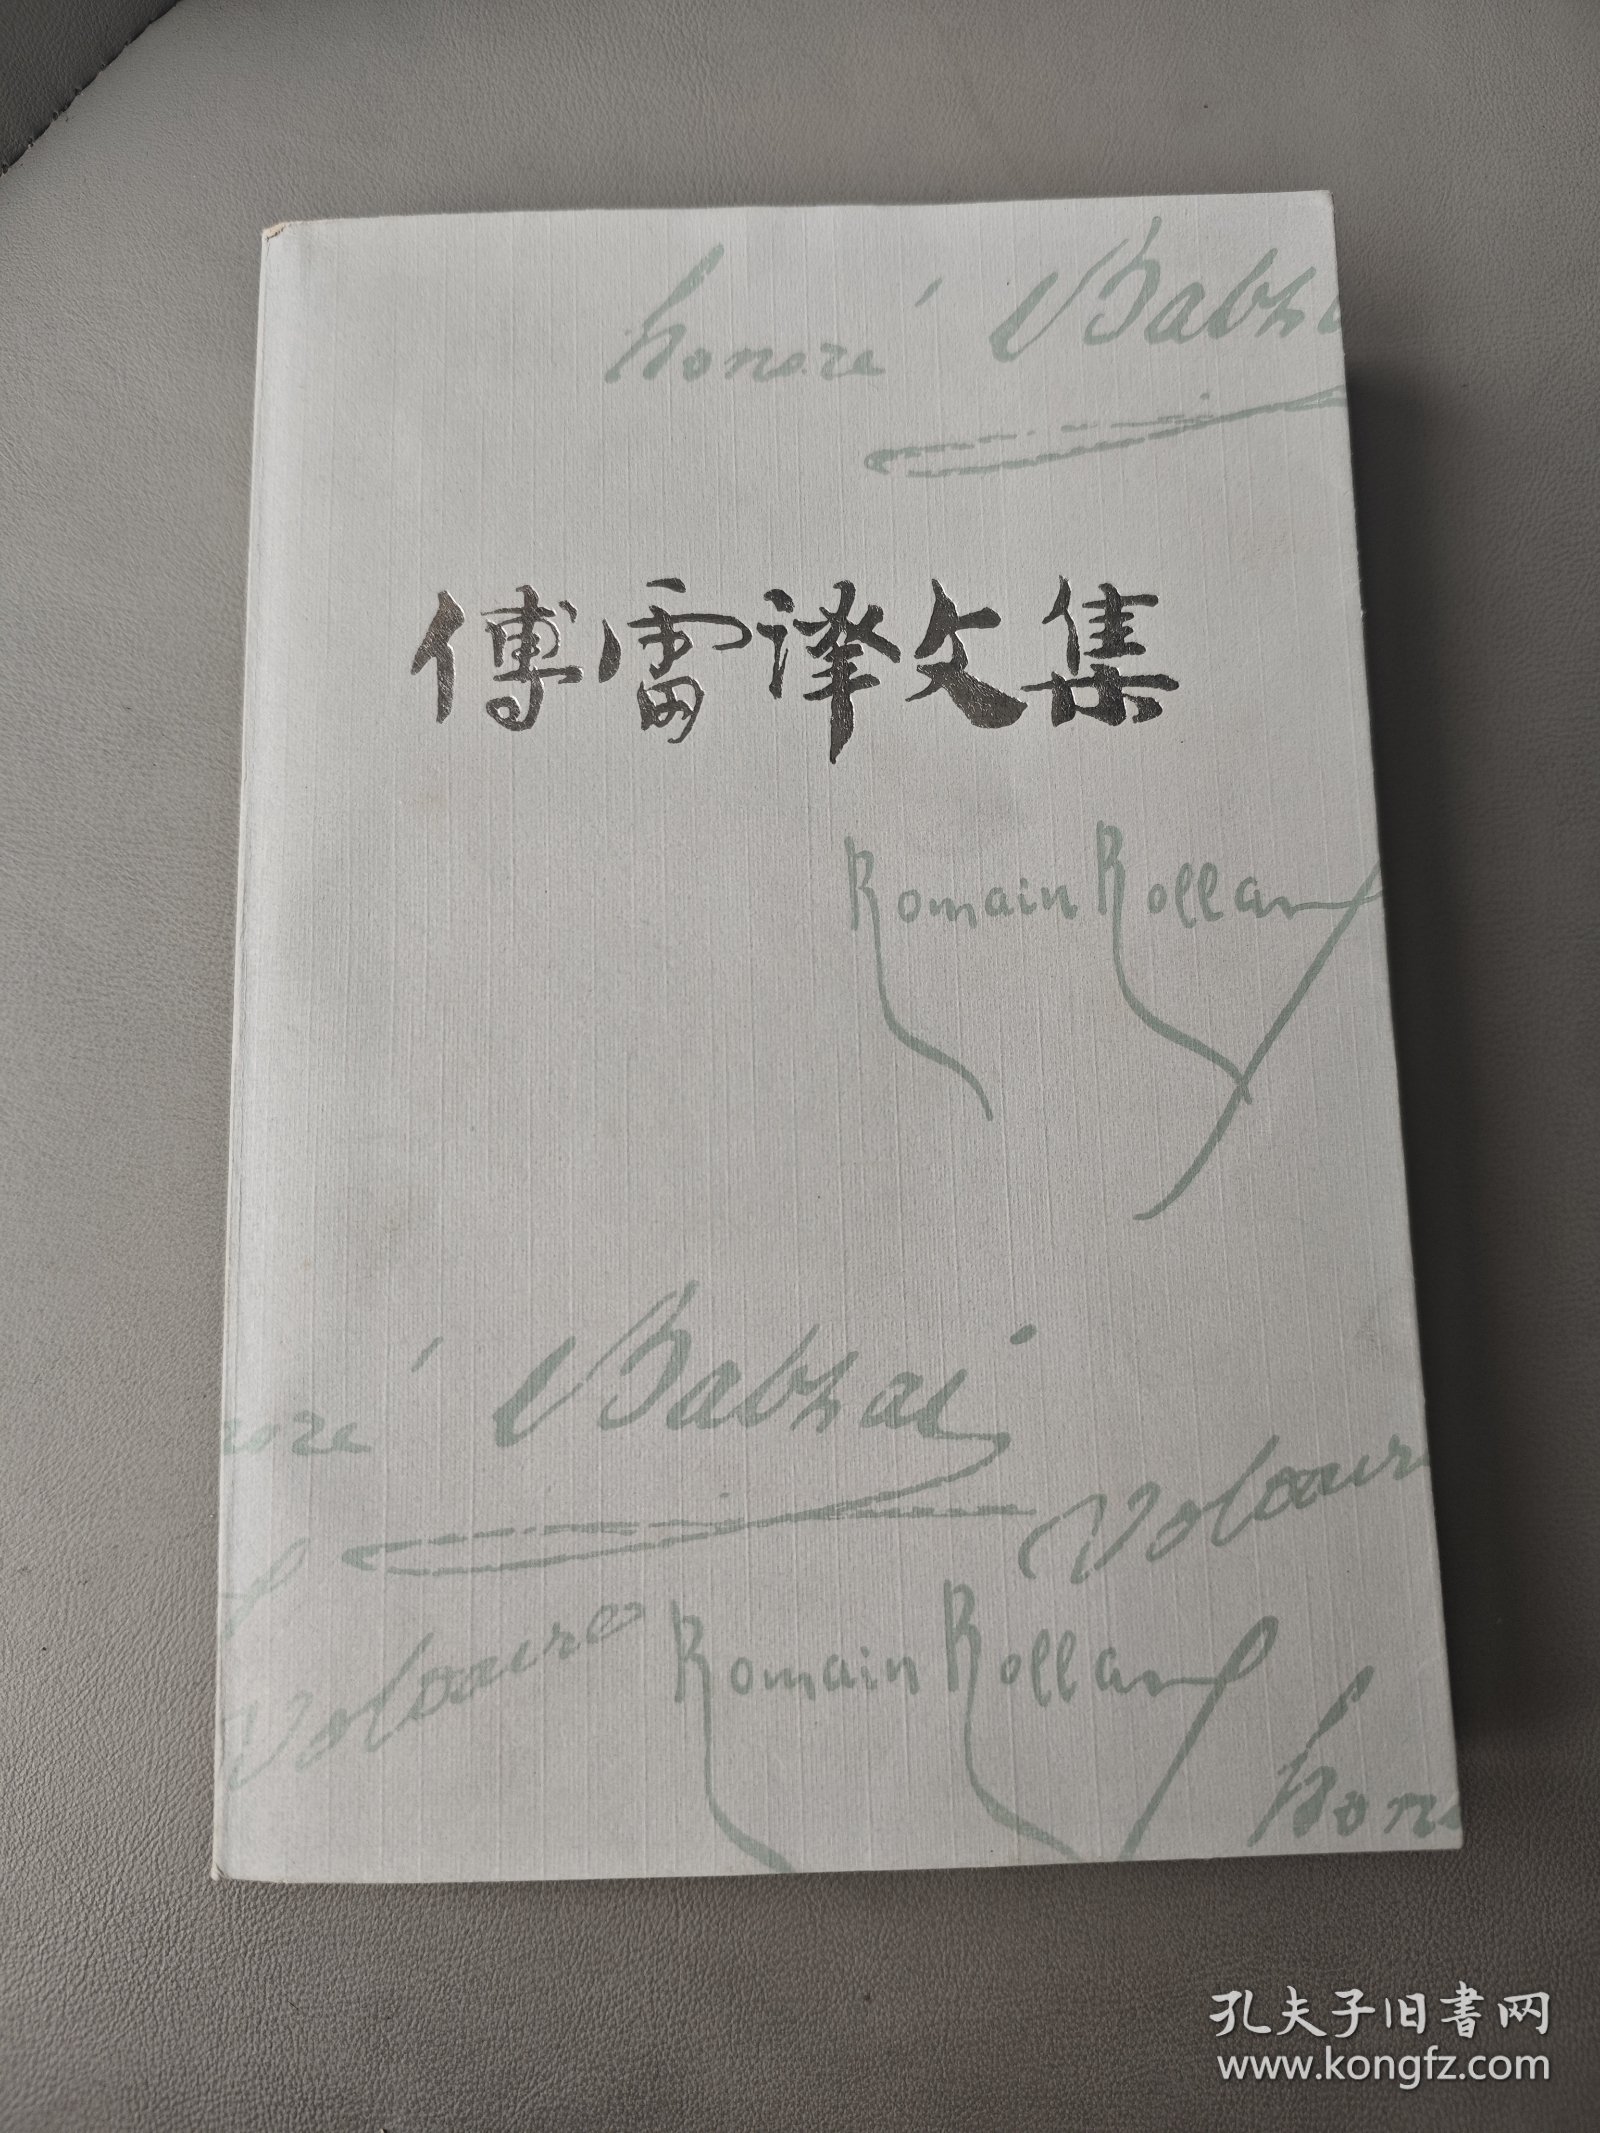 honoré Balza
傅雷譯文集
Romain Rolland
noré Balzac
Voltaire
Voltaire
Romain Rolland
hono
孔夫子旧书网
www.kongfz.com